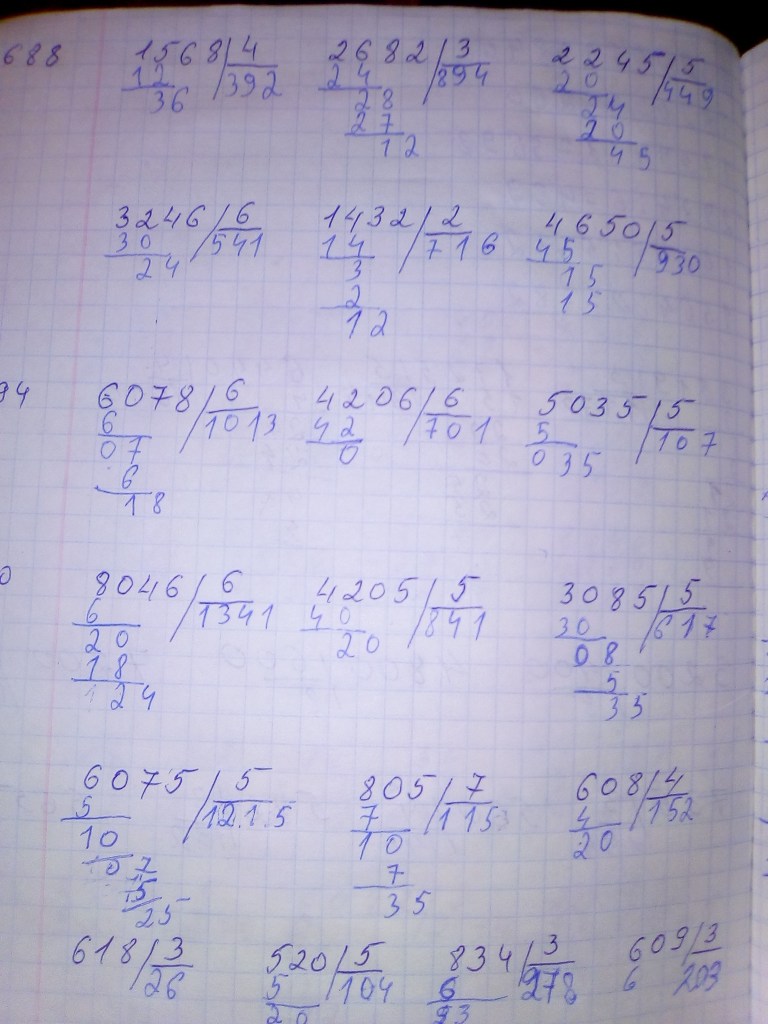 688 1568 4 2682 3 2245 5
12 392 24 894 20 449
36 28 24
27 20
12 45
3246 6 1432 2 4650 5
30 541 14 716 45 930
24 3 15
2 15
12
94 6078 6 4206 6 5035 5
6 1013 42 701 5 107
07 0 035
6
18
0 8046 6 4205 5 3085 5
6 1341 40 841 30 617
20 20 08
18 5
24 35
6075 5 805 7 608 4
5 12.1.5 7 115 4 152
10 10 20
07 7
5 35
25
618 3 520 5 834 3 609 3
26 5 104 6 278 6 203
20 23